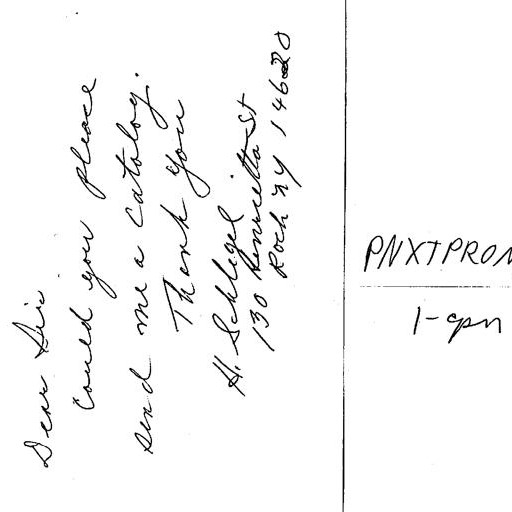 Dear Sir.
Could you please
send me a catalog.
Thank you
H. Schlegel
130 Henrietta St
Roch NY 14620
PNXTPROM
1-